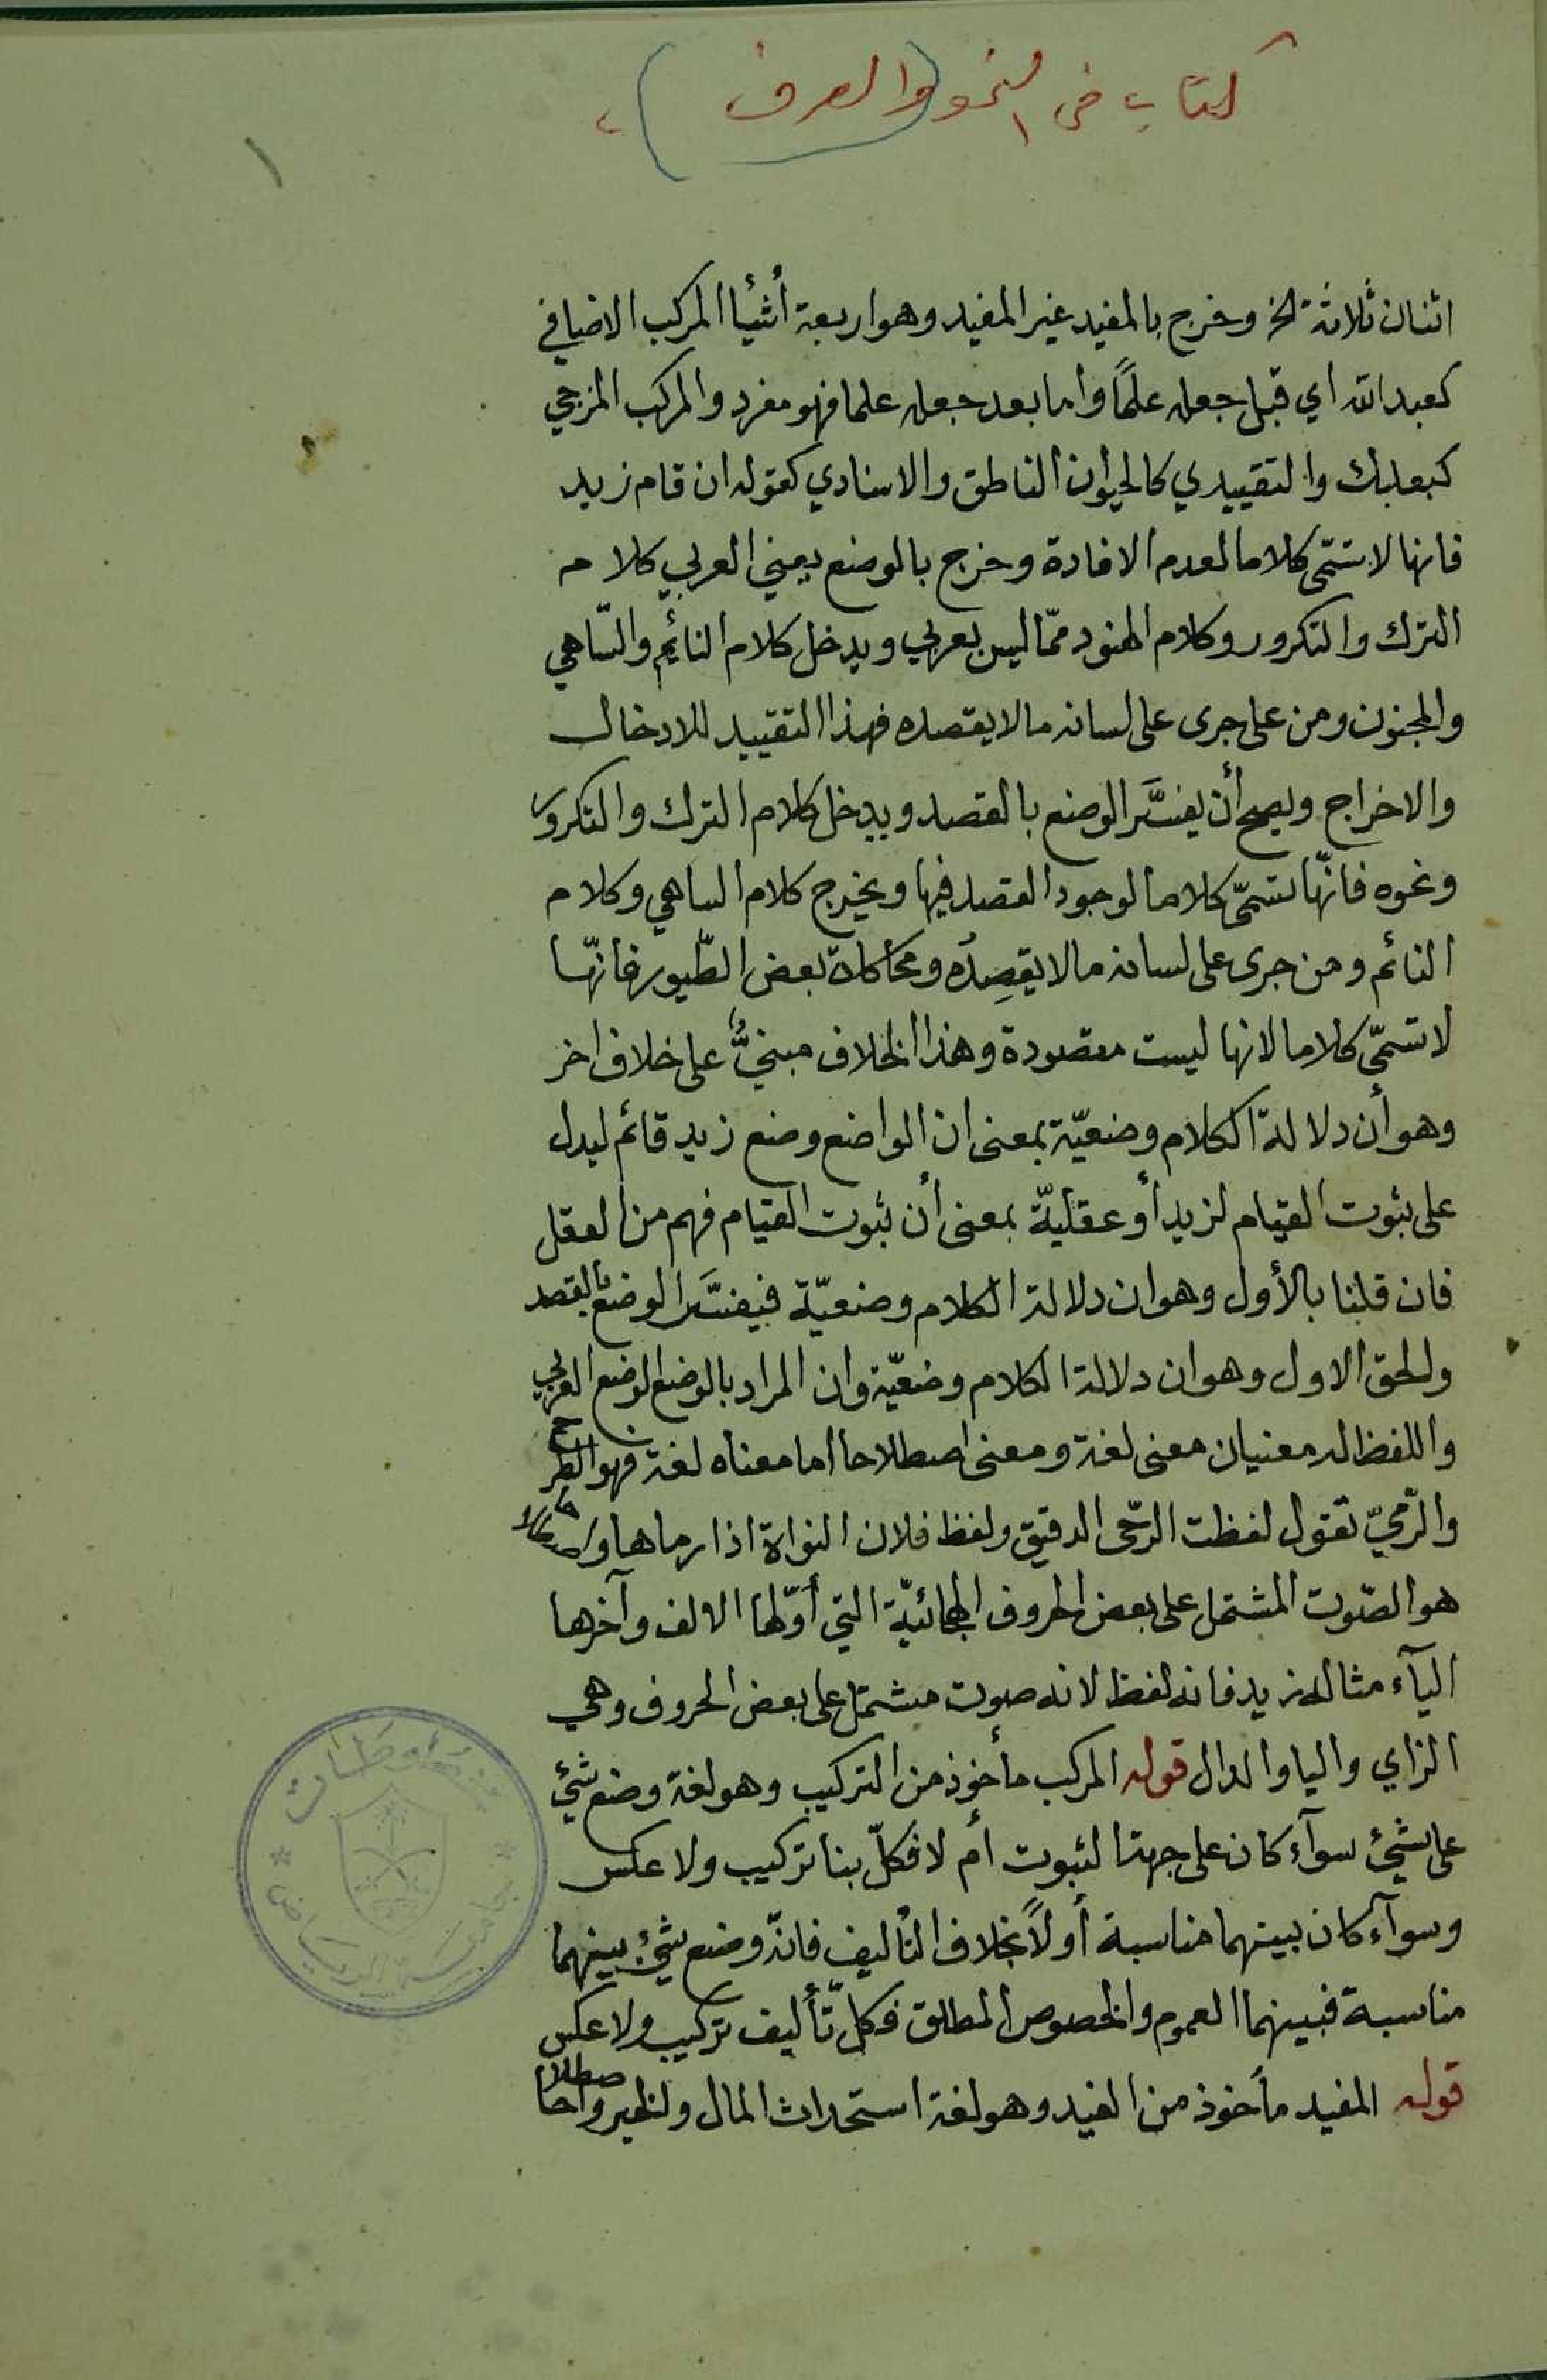 كتاب في النحو (والصرف)
١
اثنان ثلاثة الخ وخرج بالمفيد غير المفيد وهو اربعة أشيأ المركب الاضافي
كعبد الله اي قبل جعله علمًا واما بعد جعله علما فهو مفرد والمركب المزجي
كبعلبك والتقييدي كالحيوان الناطق والاسنادي كقوله ان قام زيد
فانها لا تسمّى كلاما لعدم الافادة وخرج بالوضع يعني العربي كلام
الترك والتكرور وكلام الهنود ممّا ليس بعربي ويدخل كلام النائم والسّاهي
والمجنون ومن على جرى على لسانه ما لا يقصده فهذا التقييد للادخال
والاخراج ويصح أن يفسَّر الوضع بالقصد ويدخل كلام الترك والتكرور
ونحوه فانّها تسمّى كلاما لوجود القصد فيها ويخرج كلام الساهي وكلام
النائم ومن جرى على لسانه ما لا يقصِدُه ومحاكاة بعض الطّيور فانّها
لا تسمّى كلاما لانها ليست مقصودة وهذا الخلاف مبنيٌّ على خلاف اخر
وهو أن دلالة الكلام وضعيّة بمعنى ان الواضع وضع زيد قائم ليدل
على ثبوت القيام لزيد أو عقليّة بمعنى أن ثبوت القيام فهم من العقل
فان قلنا بالأول وهو ان دلالة الكلام وضعيّة فيفسَّر الوضع بالقصد
والحق الاول وهو ان دلالة الكلام وضعيّة وان المراد بالوضع الوضع العربي
واللفظ له معنيان معنى لغة ومعنى اصطلاحا اما معناه لغة فهو الطرح
والرّميّ تقول لفظت الرّحى الدقيق ولفظ فلان النواة اذا رماها واصطلاحا
هو الصّوت المشتمل على بعض الحروف الهجائيّة التي أوّلها الالف وآخرها
اليآء مثاله زيد فانه لفظ لانه صوت مشتمل على بعض الحروف وهي
الزاي واليا والدال قوله المركب مأخوذ من التركيب وهو لغة وضع شئ
على شئ سوآء كان على جهة الثبوت أم لا فكلّ بنا تركيب ولا عكس
وسوآء كان بينهما مناسبة أو لاً بخلاف التأليف فانّه وضع شئ بينهما
مناسبة فبينهما العموم والخصوص المطلق فكل تأليف تركيب ولا عكس
قوله المفيد مأخوذ من الفيد وهو لغة استحداث المال والخير واصطلاحا
جامعة الرياض